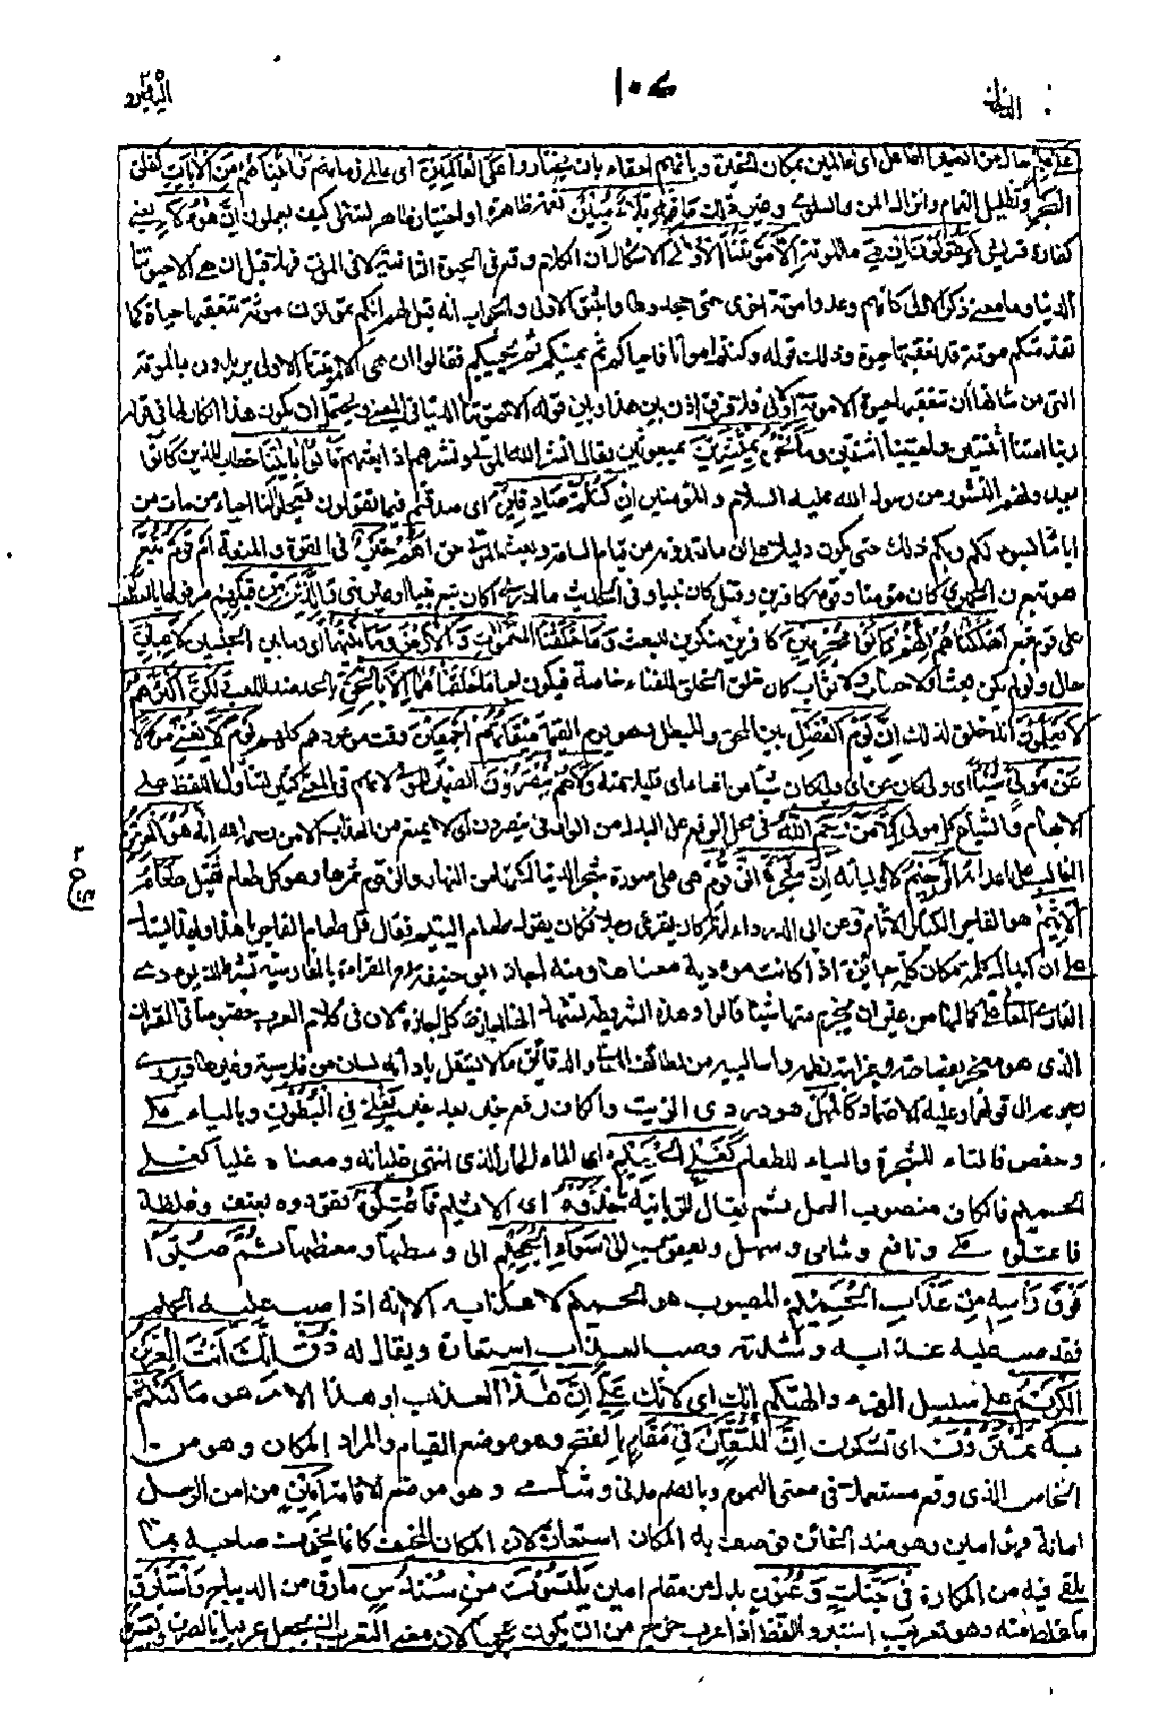 الدخان
اليه يرد ٢٥
على علم حال من ضمير الفاعل اى عالمين بمكان الخيرة وبانهم احقاء بان يختاروا على العالمين اى عالمى زمانهم وآتيناهم من الآيات كفلق
البحر وتظليل الغمام وانزال المن والسلوى وغير ذلك ما فيه بلاء مبين نعمة ظاهرة او اختبار ظاهر لننظر كيف يعملون ان هؤلاء يعنى
كفار قريش ليقولون ان هى ما الموتة الا موتتنا الاولى الاشكال ان الكلام وقع فى الحيوة الثانية لا فى الموت فهلا قيل ان هى الا حيوتنا
الدنيا وما معنى ذكر الاولى كانهم وعدوا موتة اخرى حتى جحدوها واثبتوا الاولى والجواب انه قيل لهم انكم تموتون موتة تتعقبها حياة كما
تقدمتكم موتة قد تعقبتها حيوة وذلك قوله وكنتم امواتا فاحياكم ثم يميتكم ثم يحييكم فقالوا ان هى الا موتتنا الاولى يريدون ما الموتة
التى من شانها ان تتعقبها حيوة الا موتة الاولى فلا فرق اذن بين هذا وبين قوله الا حيوتنا الدنيا فى المعنى ويحتمل ان يكون هذا انكارا لما فى قوله
ربنا امتنا اثنتين واحييتنا اثنتين وما نحن بمنشرين بمبعوثين يقال انشر الله الموتى ونشرهم اذا بعثهم فأتوا بآبائنا خطاب للذين كانوا
يعدونهم النشور من رسول الله عليه السلام والمؤمنين ان كنتم صادقين اى صدقتم فيما تقولون فعجلوا لنا احياء من مات من
ابائنا بسؤالكم ربكم ذلك حتى يكون دليلا على ان ما تعدونه من قيام الساعة وبعث الموتى حق أهم خير فى القوة والمنعة أم قوم تبع
هو تبع الحميرى كان مؤمنا وقومه كافرين وقيل كان نبيا وفى الحديث ما ادرى اكان تبع نبيا او غير نبى والذين من قبلهم مرفوع بالعطف
على قوم تبع اهلكناهم انهم كانوا مجرمين كافرين منكرين للبعث وما خلقنا السموات والارض وما بينهما اى وما بين الجنسين لاعبين
حال ولو لم يكن بعث ولا حساب ولا ثواب كان خلق الخلق للفناء خاصة فيكون لعبا ما خلقناهما الا بالحق بالجد ضد اللعب ولكن اكثرهم
لا يعلمون انه خلق لذلك ان يوم الفصل بين المحق والمبطل وهو يوم القيمة ميقاتهم اجمعين وقت موعدهم كلهم يوم لا يغنى مولى
عن مولى شيئا اى ولى كان عن اى ولى كان شيئا من اغناء اى قليلا منه ولا هم ينصرون الضمير للمولى لانهم فى المعنى كثير لتناول اللفظ على
الابهام والشياع كل مولى الا من رحم الله فى محل الرفع على البدل من الواو فى ينصرون اى لا يمنع من العذاب الا من رحمه الله انه هو العزيز
الغالب على اعدائه الرحيم لاوليائه ان شجرة الزقوم هى على صورة شجر الدنيا لكنها من النار والزقوم ثمرها وهو كل طعام ثقيل طعام
الاثيم هو الفاجر الكثير الآثام وعن ابى الدرداء انه كان يقرئ رجلا فكان يقول طعام اليتيم فقال قل طعام الفاجر يا هذا وبهذا يستدل
على ان ابدال كلمة مكان كلمة جائز اذا كانت مؤدية معناها ومنه اجاز ابو حنيفة رح القراءة بالفارسية بشرط ان يؤدى
القارى المعانى على كمالها من غير ان يخرم منها شيئا قالوا وهذه الشريطة تشهد انها اجازة كلا اجازة لان فى كلام العرب خصوصا فى القرآن
الذى هو معجز بفصاحته وغرابة نظمه واساليبه من لطائف المعانى والدقائق ما لا يستقل بادائه لسان من فارسية وغيرها ويروى
رجوعه الى قولهما وعليه الاعتماد كالمهل هو دردى الزيت والكاف رفع خبر بعد خبر يغلى فى البطون وبالياء مكى
وحفص فالتاء للشجرة والياء للطعام كغلى الحميم اى الماء الحار الذى انتهى غليانه ومعناه غليا كغلى
الحميم فالكاف منصوب المحل ثم يقال للزبانية خذوه اى الاثيم فاعتلوه فقودوه بعنف وغلظة
فاعتلوه مكى ونافع وشامى وسهل ويعقوب الى سواء الجحيم الى وسطها ومعظمها ثم صبوا
فوق رأسه من عذاب الحميم المصبوب هو الحميم لا عذابه الا انه اذا صب عليه الحميم
فقد صب عليه عذابه وشدته وصب العذاب استعارة ويقال له ذق انك انت العزيز
الكريم على سبيل الهزء والتهكم انك اى لانك على ان هذا العذاب او هذا الامر هو ما كنتم
به تمترون اى تشكون ان المتقين فى مقام بالفتح وهو موضع القيام والمراد المكان وهو من
الخاص الذى وقع مستعملا فى معنى العموم وبالضم مدنى وشامى وهو موضع الاقامة امين من امن الرجل
امانة فهو امين وهو ضد الخائن فوصف به المكان استعارة لان المكان المخيف كانما يخون صاحبه بما
يلقى فيه من المكاره فى جنات وعيون بدل من مقام امين يلبسون من سندس ما رق من الديباج واستبرق
ما غلظ منه وهو تعريب استبر واللفظ اذا عرب خرج من ان يكون عجميا لان معنى التعريب ان يجعل عربيا بالتصرف فيه